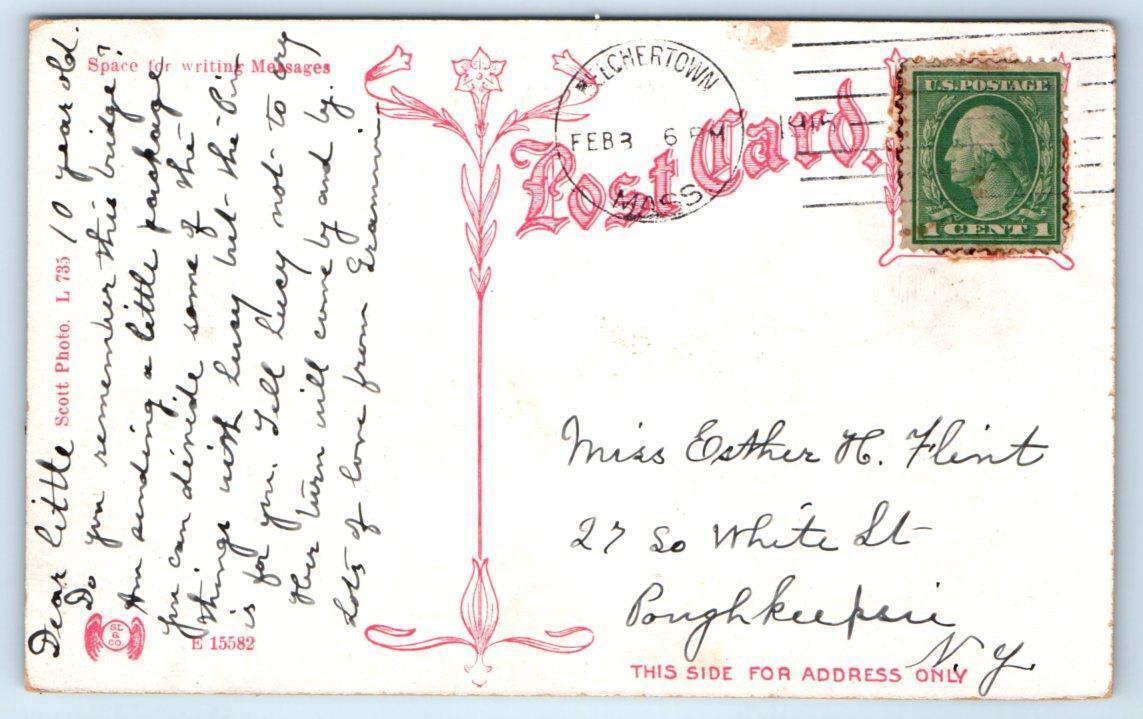 Space for writing Messages
Post Card.
BELCHERTOWN
FEB 3 6 PM
MASS
U.S. POSTAGE
1 CENT 1
Dear little 10 year old.
Do you remember this bridge?
Am sending a little package
you can divide some of the
things with Lucy but the Pin
is for you. Tell Lucy not to cry
Her turn will come by and by.
Lots of love from Grammie
Scott Photo. L 735
Miss Esther H. Flint
27 So White St
Poughkeepsie
N. Y.
SL & CO
E 15582
THIS SIDE FOR ADDRESS ONLY